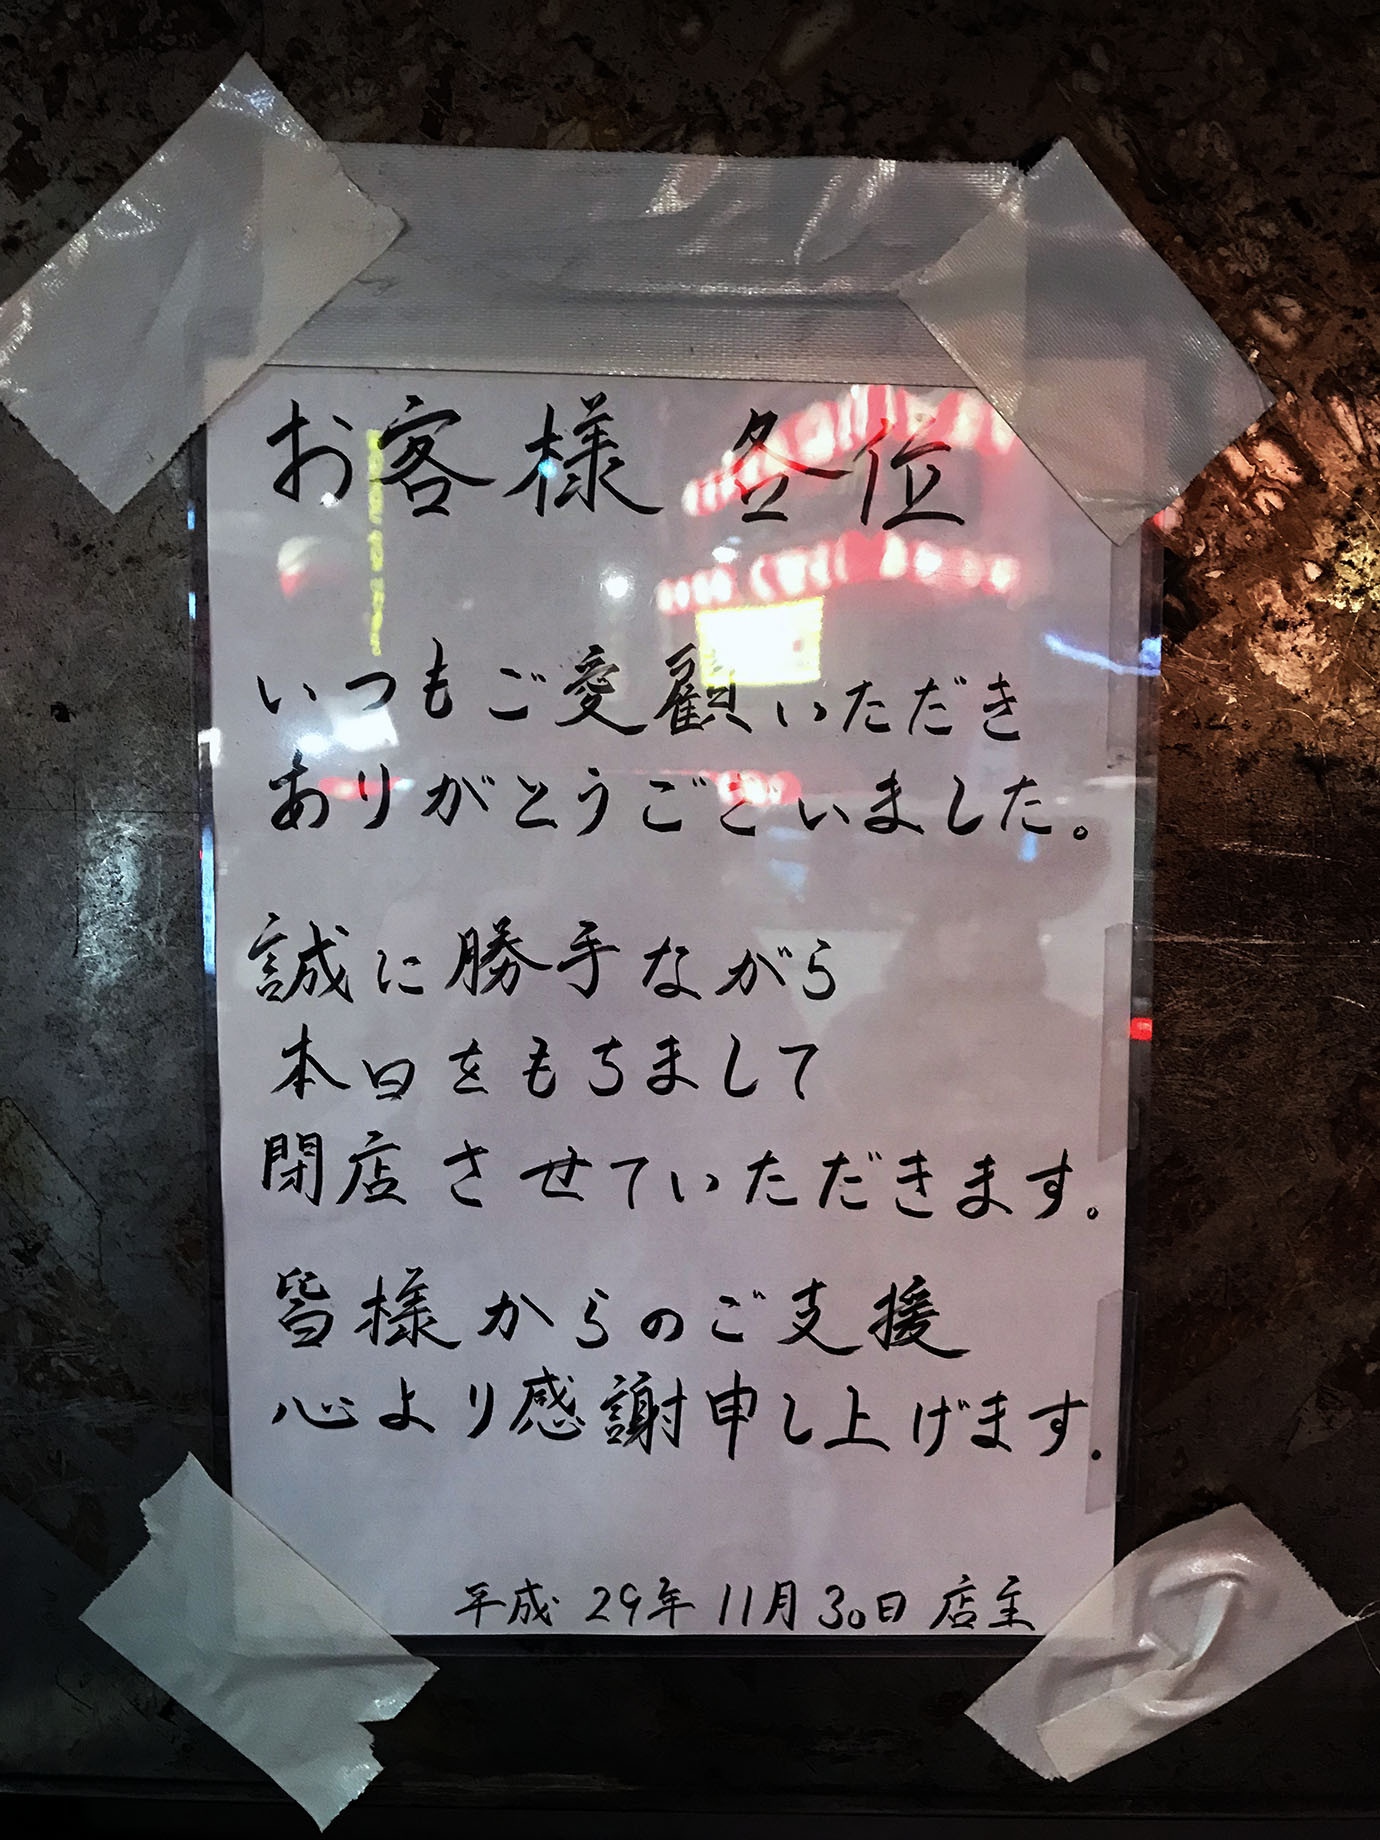 お客様 各位
いつもご愛顧いただき
ありがとうございました。
誠に勝手ながら
本日をもちまして
閉店させていただきます。
皆様からのご支援
心より感謝申し上げます.
平成 29年 11月30日 店主